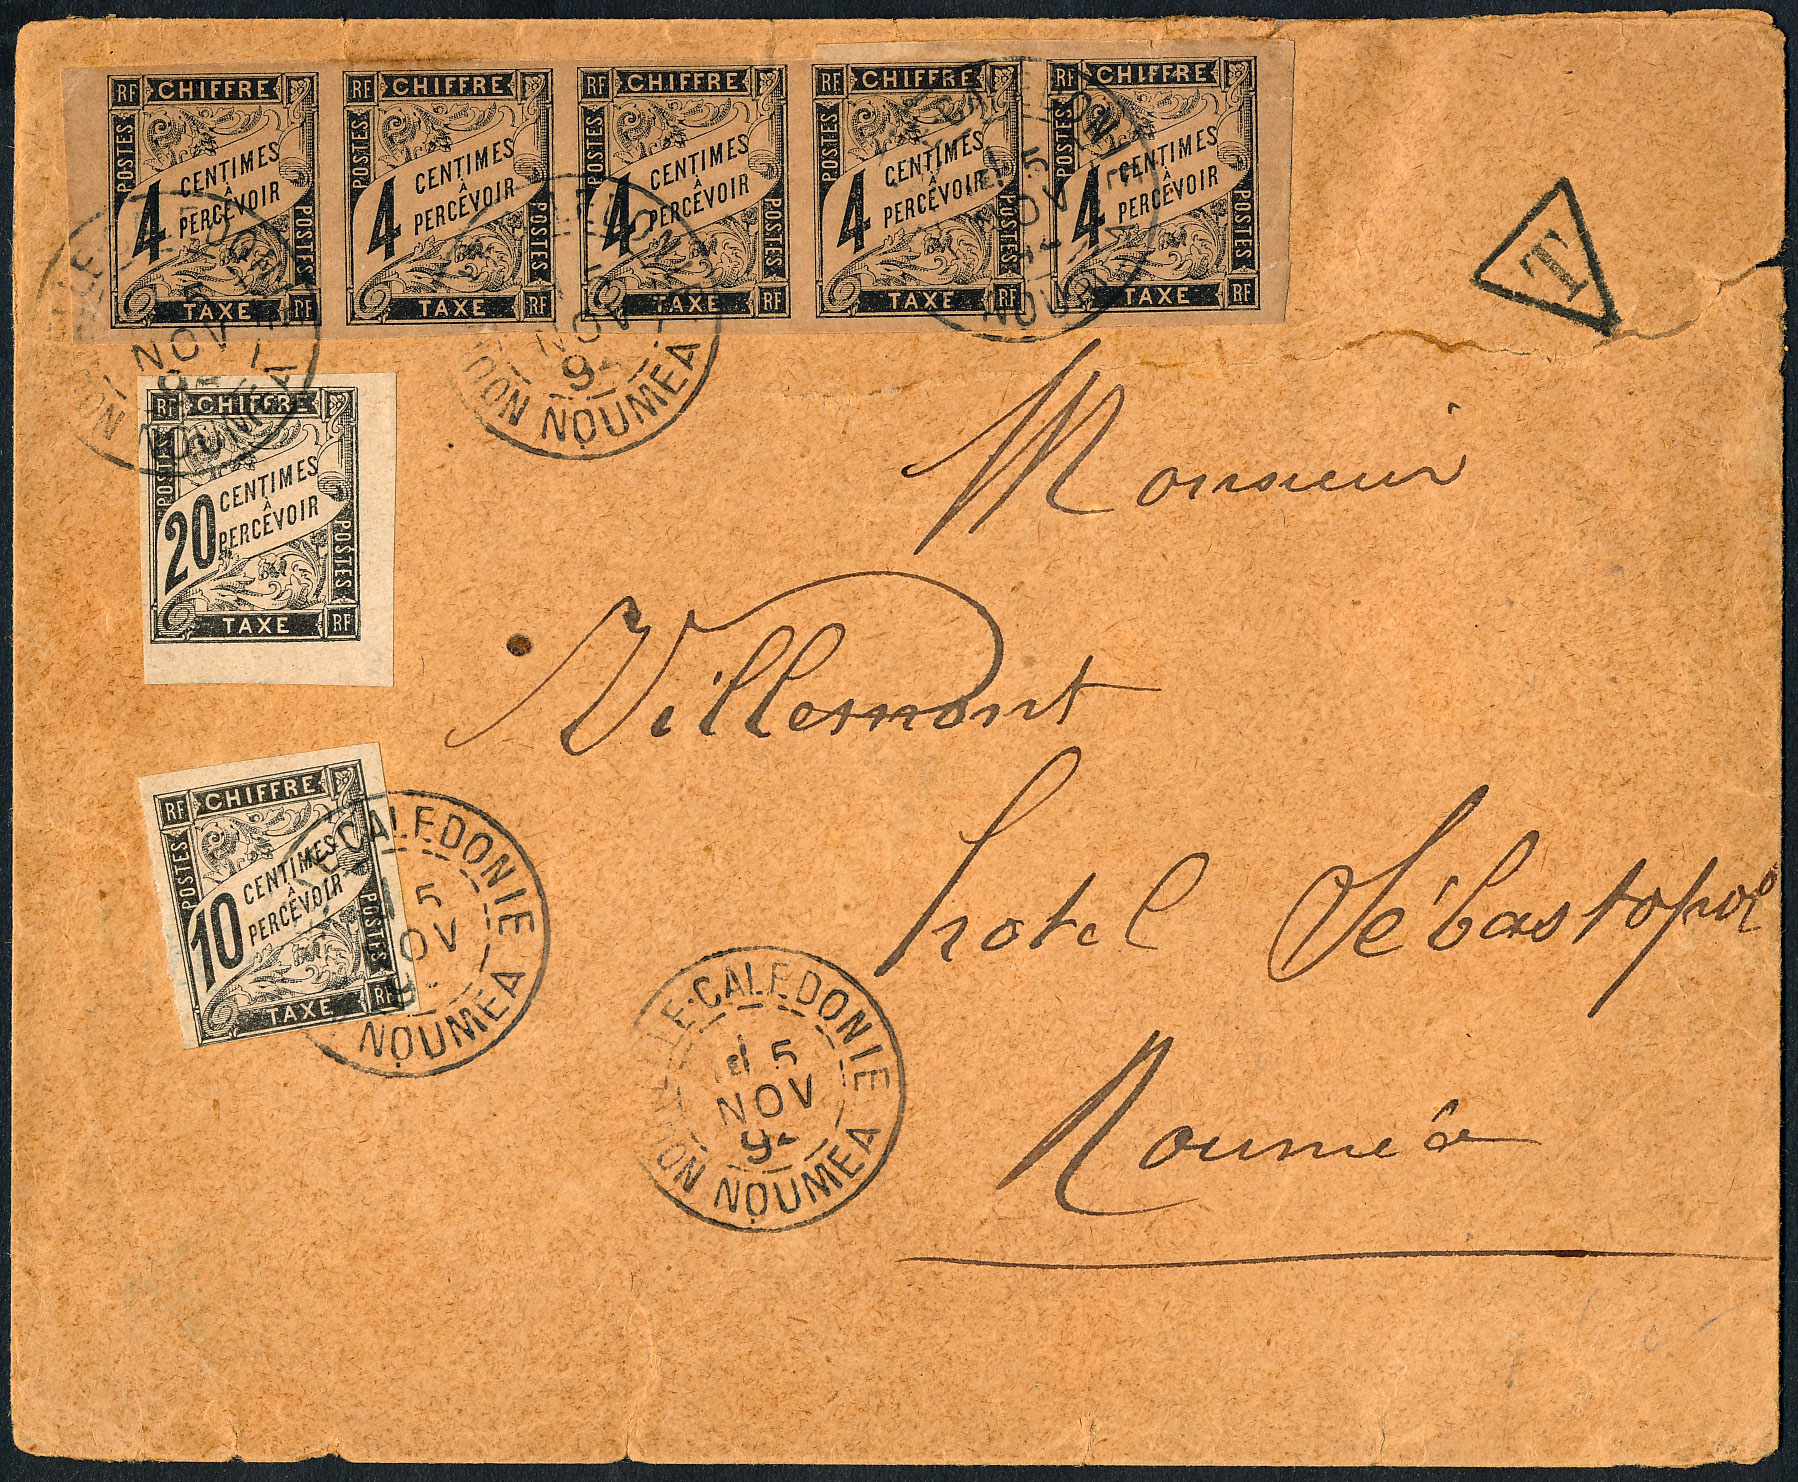 RF CHIFFRE
POSTES
4 CENTIMES
À
PERCEVOIR
POSTES
TAXE RF
RF CHIFFRE
POSTES
4 CENTIMES
À
PERCEVOIR
POSTES
TAXE RF
RF CHIFFRE
POSTES
4 CENTIMES
À
PERCEVOIR
POSTES
TAXE RF
RF CHIFFRE
POSTES
4 CENTIMES
À
PERCEVOIR
POSTES
TAXE RF
RF CHIFFRE
POSTES
4 CENTIMES
À
PERCEVOIR
POSTES
TAXE RF
T
NOV
NOUMEA
NOV
9
NOUMEA
5
NOV
NOUMEA
RF CHIFFRE
POSTES
20 CENTIMES
À
PERCEVOIR
POSTES
TAXE RF
Monsieur
Villemont
hotel Sébastopol
Nouméa
RF CHIFFRE
POSTES
10 CENTIMES
À
PERCEVOIR
POSTES
TAXE RF
CALEDONIE
5
NOV
9
NOUMEA
LLE-CALEDONIE
5
NOV
9
NOUMEA